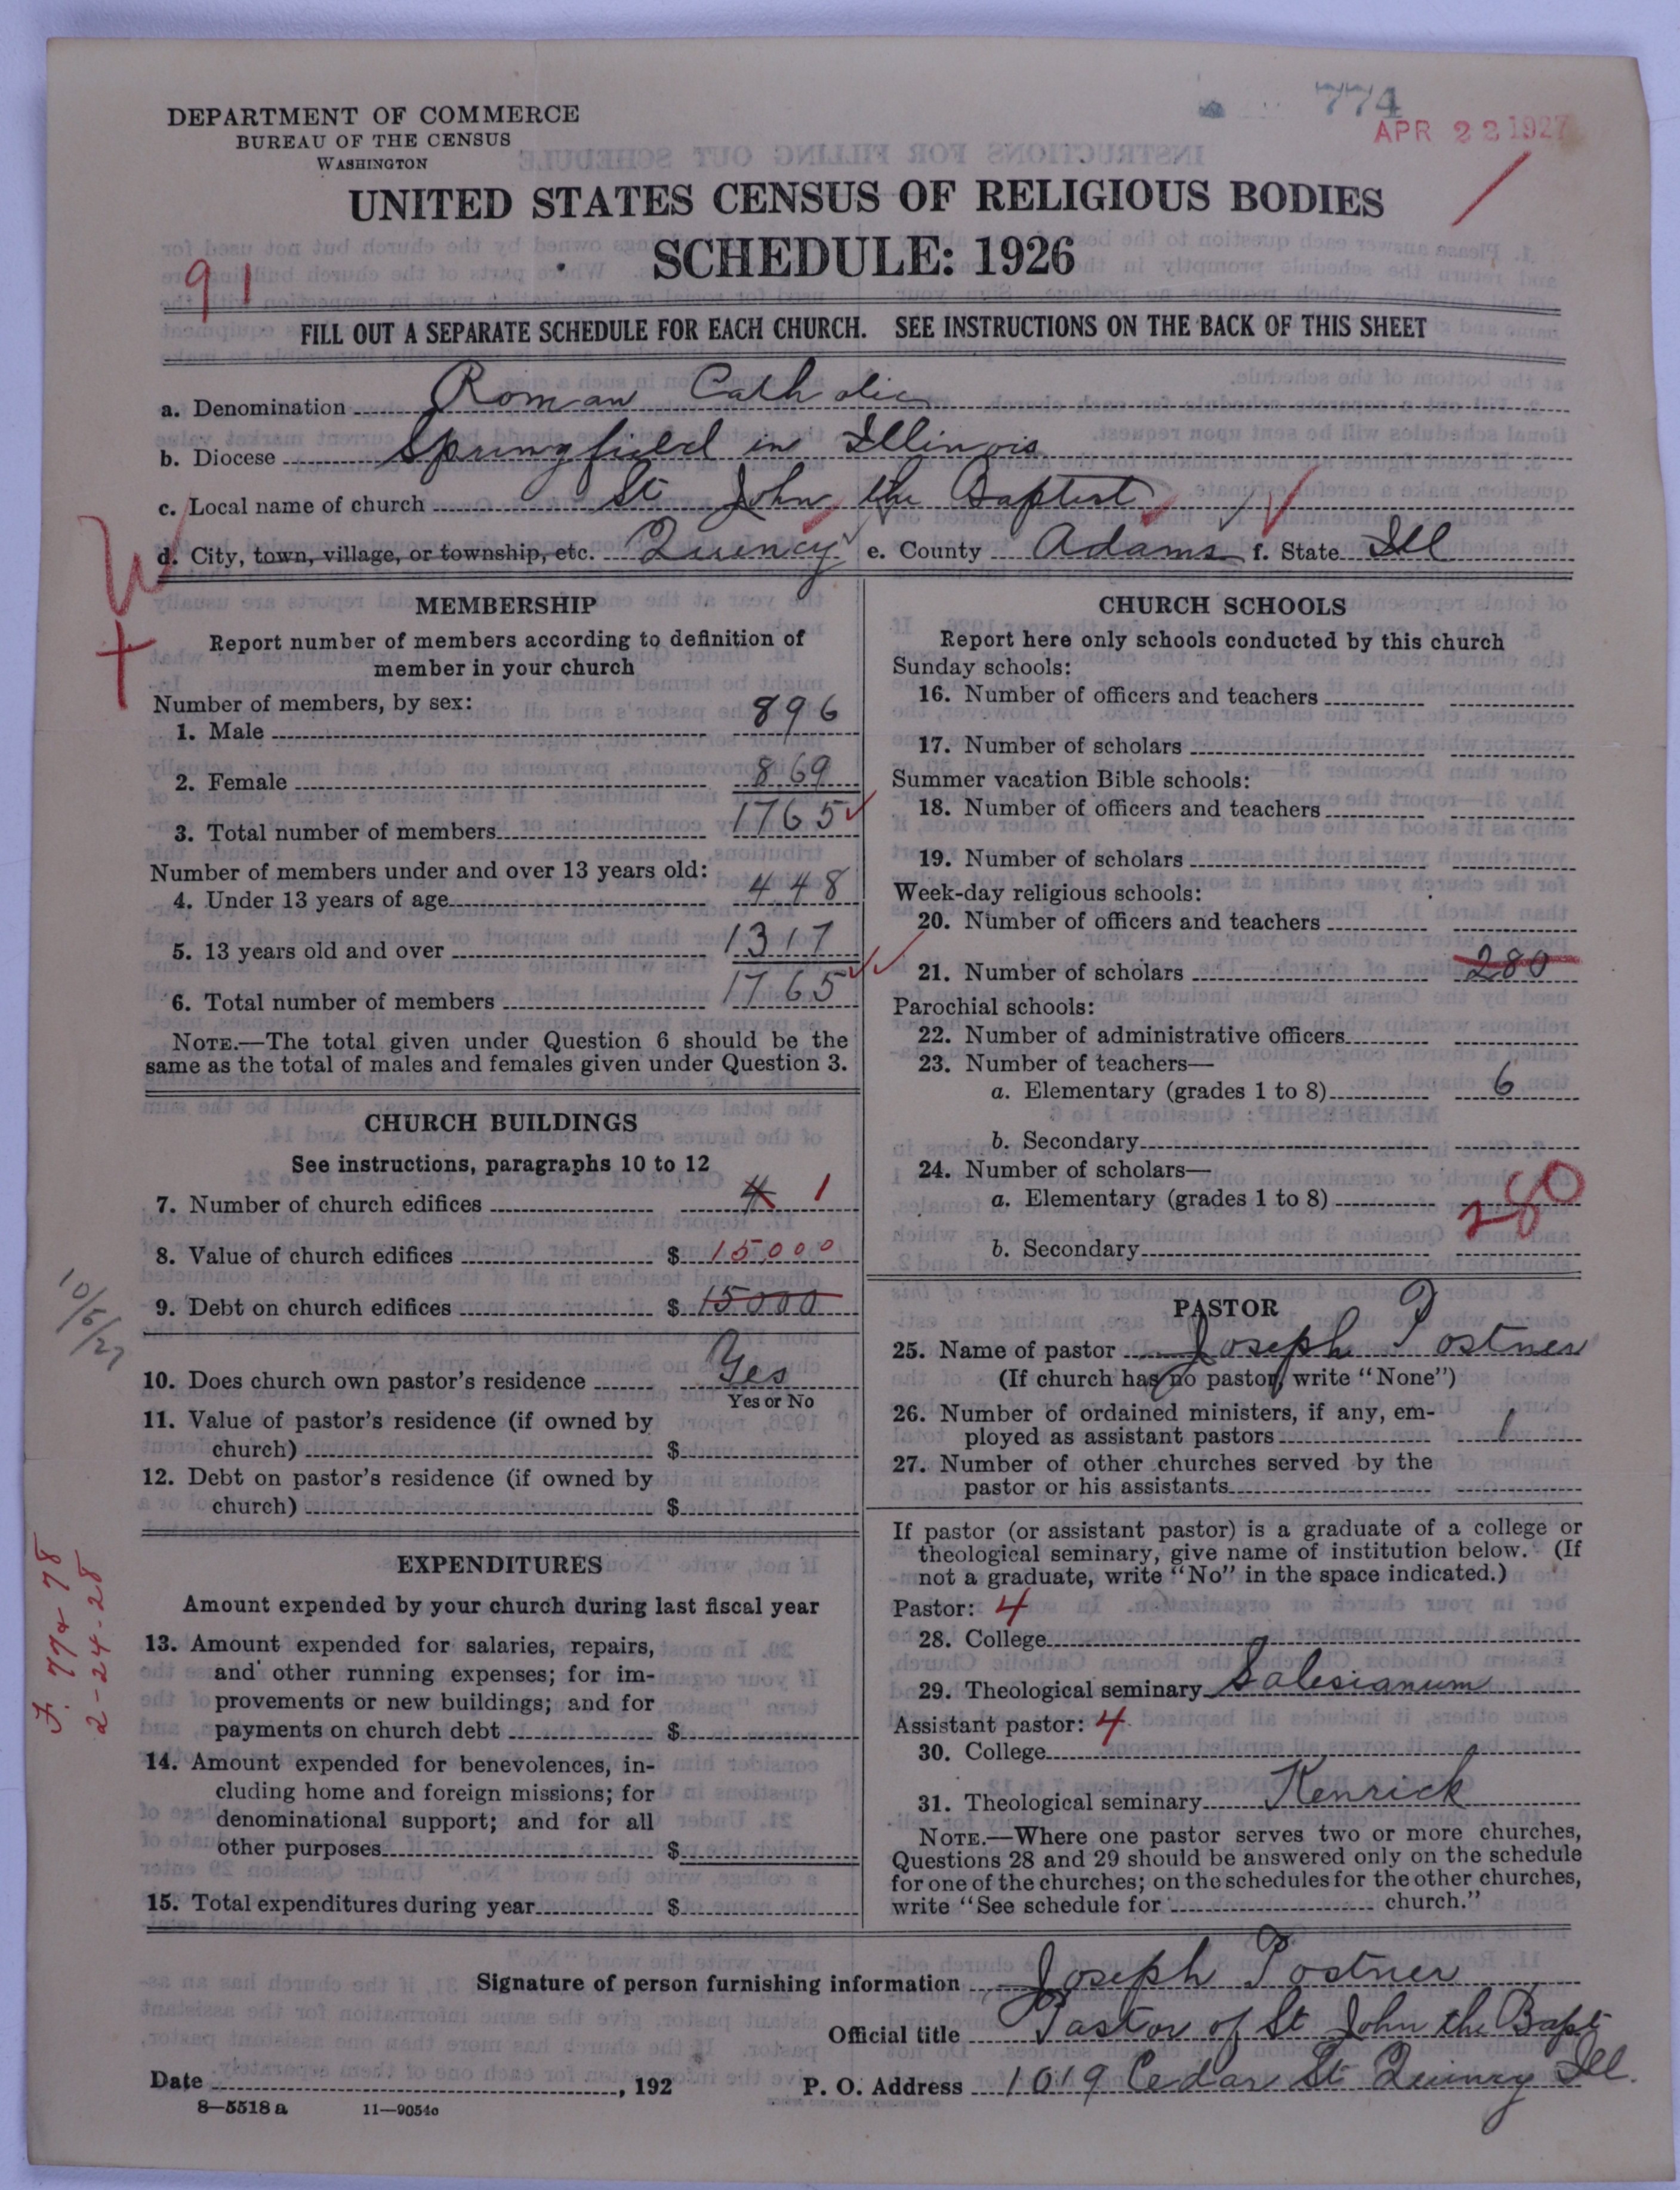 774
APR 22 1927
DEPARTMENT OF COMMERCE
BUREAU OF THE CENSUS
WASHINGTON
UNITED STATES CENSUS OF RELIGIOUS BODIES
SCHEDULE: 1926
91
FILL OUT A SEPARATE SCHEDULE FOR EACH CHURCH. SEE INSTRUCTIONS ON THE BACK OF THIS SHEET
a. Denomination Roman Catholic
b. Diocese Springfield in Illinois
c. Local name of church St John the Baptist
d. City, town, village, or township, etc. Quincy e. County Adams f. State Ill
MEMBERSHIP
Report number of members according to definition of
member in your church
Number of members, by sex:
1. Male 896
2. Female 869
3. Total number of members 1765
Number of members under and over 13 years old:
4. Under 13 years of age 448
5. 13 years old and over 1317
6. Total number of members 1765
NOTE.—The total given under Question 6 should be the
same as the total of males and females given under Question 3.
CHURCH BUILDINGS
See instructions, paragraphs 10 to 12
7. Number of church edifices 1
8. Value of church edifices $ 15000
9. Debt on church edifices $ 15000
10. Does church own pastor's residence Yes
Yes or No
11. Value of pastor's residence (if owned by
church) $
12. Debt on pastor's residence (if owned by
church) $
EXPENDITURES
Amount expended by your church during last fiscal year
13. Amount expended for salaries, repairs,
and other running expenses; for im-
provements or new buildings; and for
payments on church debt $
14. Amount expended for benevolences, in-
cluding home and foreign missions; for
denominational support; and for all
other purposes $
15. Total expenditures during year $
10/5/27
2-24-28
CHURCH SCHOOLS
Report here only schools conducted by this church
Sunday schools:
16. Number of officers and teachers
17. Number of scholars
Summer vacation Bible schools:
18. Number of officers and teachers
19. Number of scholars
Week-day religious schools:
20. Number of officers and teachers
21. Number of scholars 280
Parochial schools:
22. Number of administrative officers
23. Number of teachers—
a. Elementary (grades 1 to 8) 6
b. Secondary
24. Number of scholars—
a. Elementary (grades 1 to 8) 280
b. Secondary
PASTOR
25. Name of pastor Joseph Postner
(If church has no pastor, write "None")
26. Number of ordained ministers, if any, em-
ployed as assistant pastors 1
27. Number of other churches served by the
pastor or his assistants
If pastor (or assistant pastor) is a graduate of a college or
theological seminary, give name of institution below. (If
not a graduate, write "No" in the space indicated.)
Pastor: 4
28. College
29. Theological seminary Salesianum
Assistant pastor: 4
30. College
31. Theological seminary Kenrick
NOTE.—Where one pastor serves two or more churches,
Questions 28 and 29 should be answered only on the schedule
for one of the churches; on the schedules for the other churches,
write "See schedule for church."
Signature of person furnishing information Joseph Postner
Official title Pastor of St John the Bapt
Date , 192 P. O. Address 1019 Cedar St Quincy Ill.
8—5518 a 11—9054c